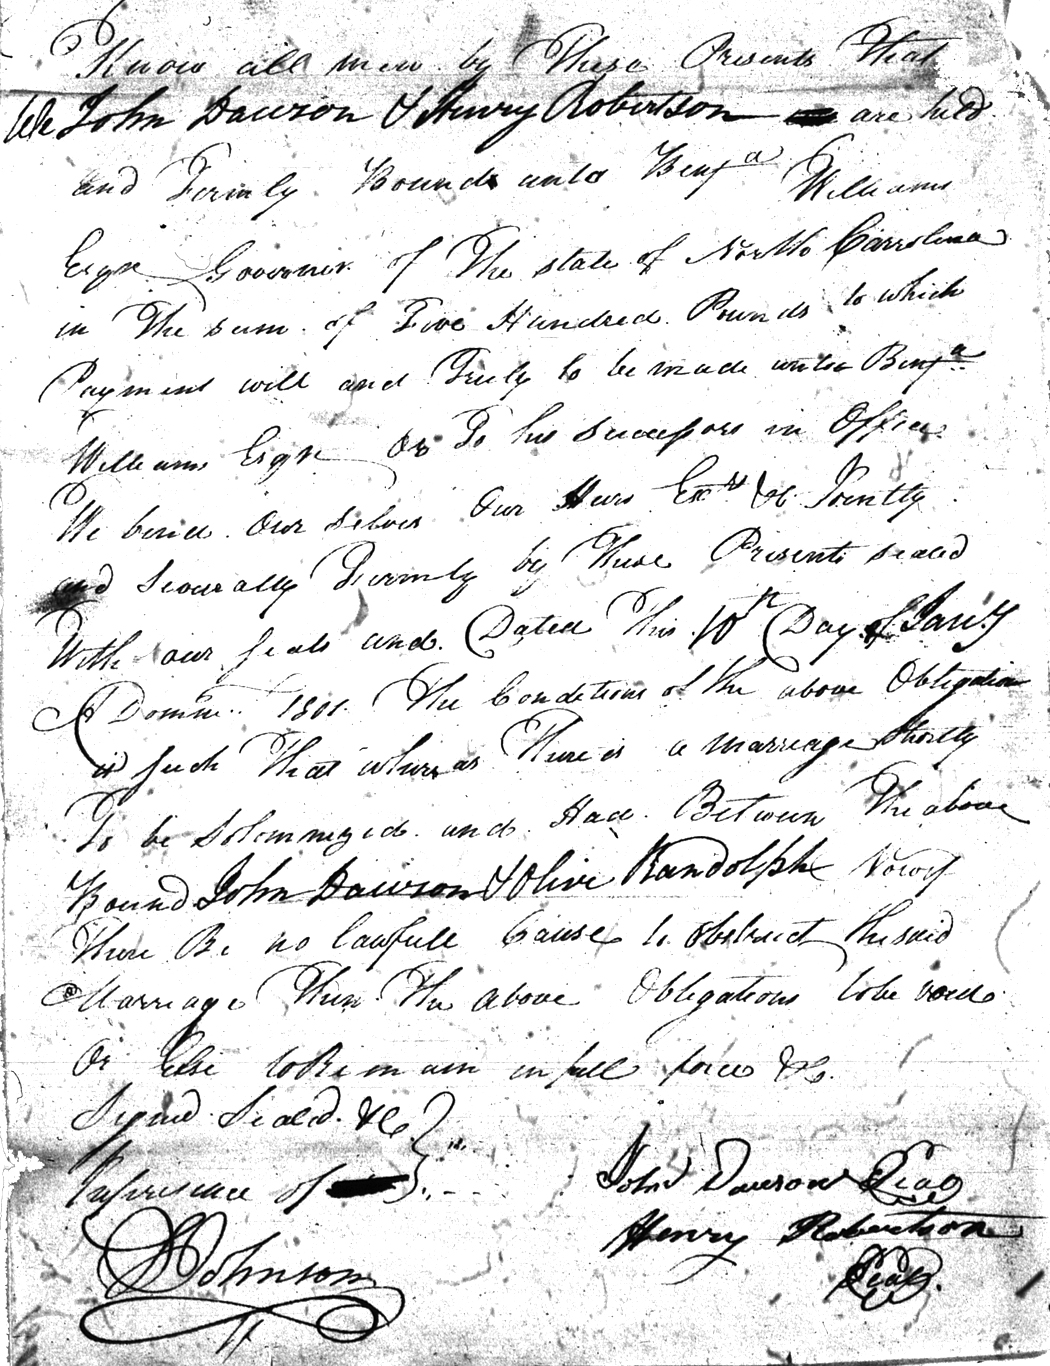 Know all men by These Presents That
We John Dawson & Henry Robertson are held
and Firmly Bound unto Benja Williams
Esqr Govornor of The state of North Carrolina
in The sum of Five Hundred Pounds to which
Payment will and Truly to be made unto Benja
Williams Esqr Or To his Successors in Office
We bind our selves Our Heirs Exrs &c Jointly
and Severally Firmly by These Presents sealed
With our seals and Dated This 10th Day of Jany
A Domini 1801 The Conditions of the above Obligation
is such That whereas There is a marriage Shortly
To be Solemnized and Had Between The above
Bound John Dawson & Olive Randolph Now if
There Be no lawfull Cause to obstruct the said
Marriage Then The above Obligations to be void
Or Else to Remain in full force &c
Signd Seald &c
In presence of
John Dawson Seal
Henry Robertson
Seal
Johnson